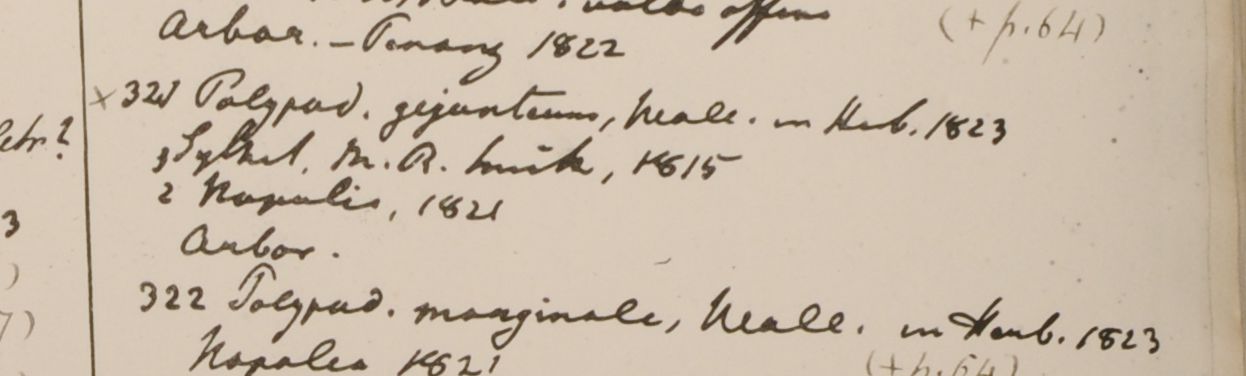 valde affine
(+ p. 64)
Arbor. – Penang 1822
× 321 Polypod. giganteum, Wall. in Herb. 1823
Sylhet, M. R. Smith, 1815
2 Napalia, 1821
Arbor.
322 Polypod. marginale, Wall. in Herb. 1823
Napalea 1821
(+ p. 64)
3
)
7)